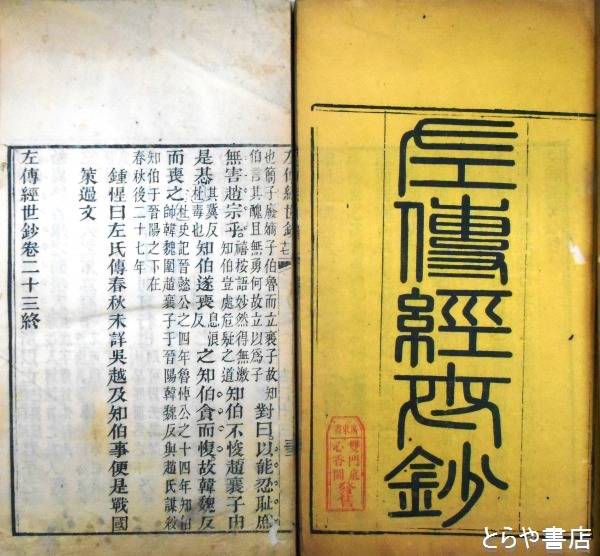 左傳經世鈔
廣東省
雙門底
心香閣
發售
左傳經世鈔
也簡子廢嫡子伯魯而立襄子故知
伯言其醜且無勇何故立以為子
對曰以能忍恥庶
無害趙宗乎
禧按語妙然得無激
知伯豈處危疑之道
知伯不悛趙襄子由
是惎
其冀反
杜毒也
知伯遂喪
息浪
反
之知伯貪而愎故韓魏反
而喪之
杜史記晉懿公之四年魯悼公之十四年知伯
師韓魏圍趙襄子于晉陽韓魏反與趙氏謀殺
知伯于晉陽之下在
春秋後二十七年
鍾惺曰左氏傳春秋未詳吳越及知伯事便是戰國
策過文
左傳經世鈔卷二十三終
とらや書店